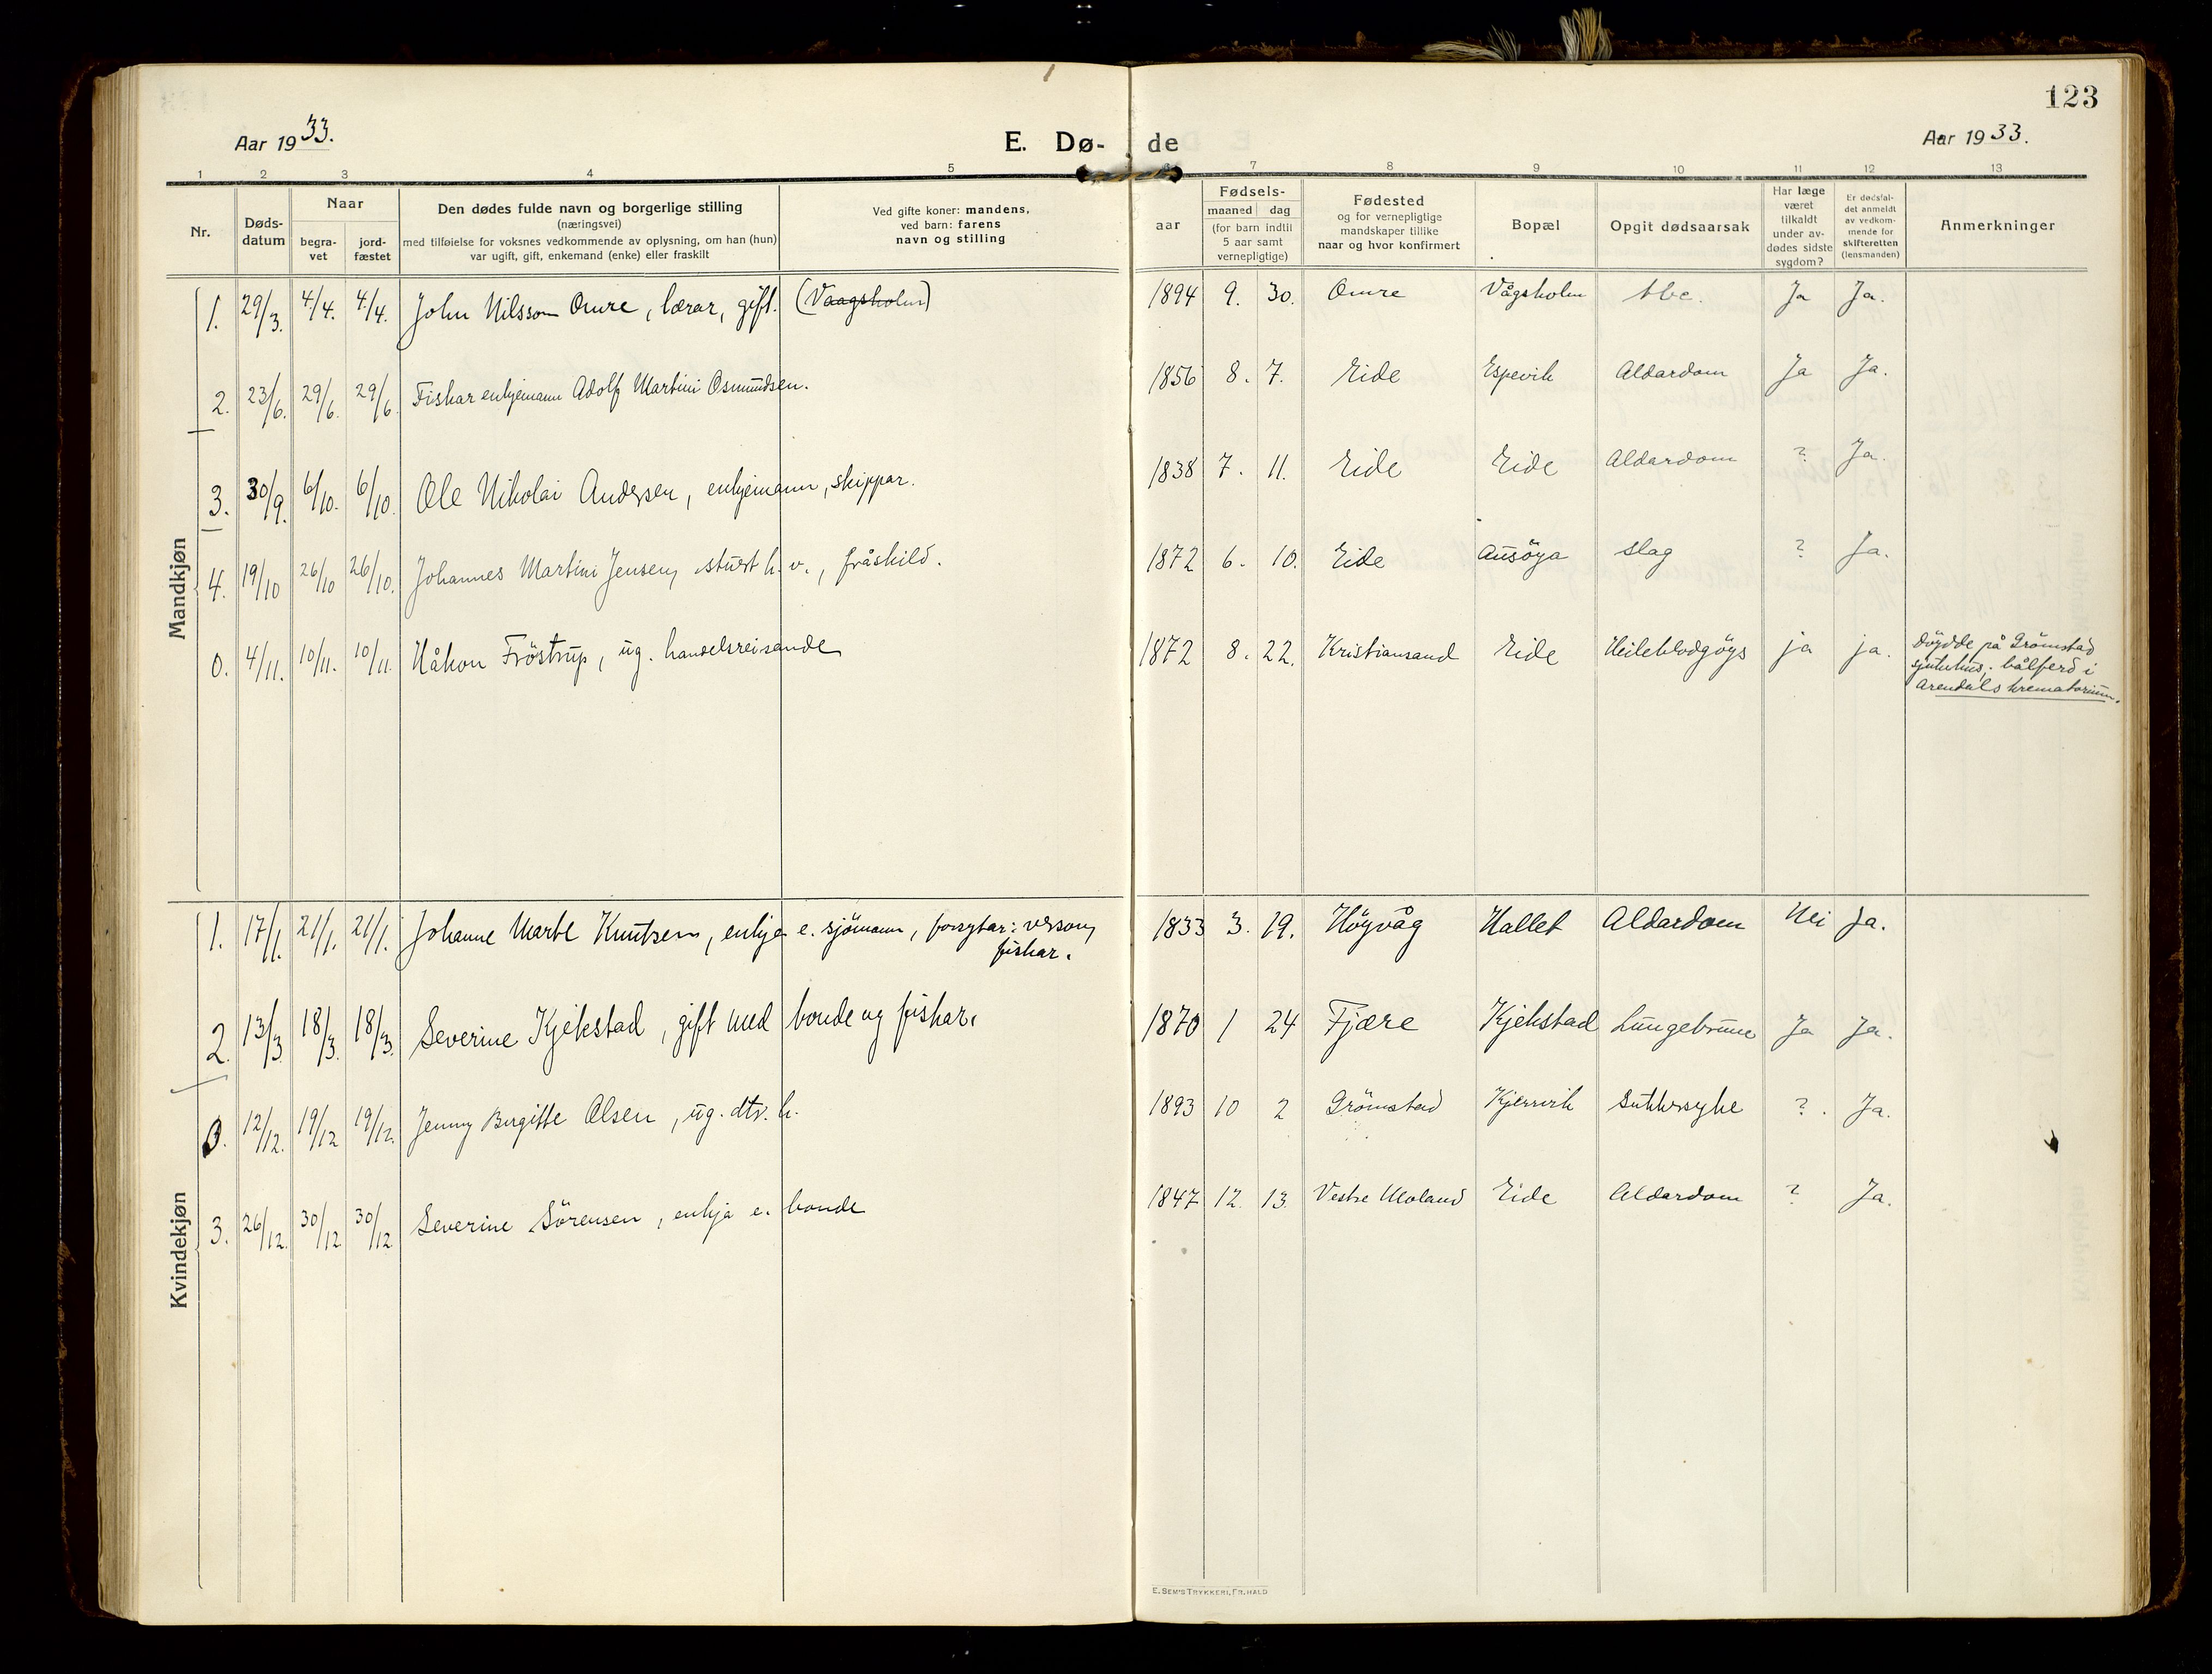 123
Aar 1933.
E. Dø- de
Aar 1933.
1 2 3 4 5 7 8 9 10 11 12 13
Nr.
Døds-
datum
Naar
begra-
vet
jord-
fæstet
Den dødes fulde navn og borgerlige stilling
(næringsvei)
med tilføielse for voksnes vedkommende av oplysning, om han (hun)
var ugift, gift, enkemand (enke) eller fraskilt
Ved gifte koner: mandens,
ved barn: farens
navn og stilling
aar
Fødsels-
maaned dag
(for barn indtil
5 aar samt
vernepligtige)
Fødested
og for vernepligtige
mandskaper tillike
naar og hvor konfirmert
Bopæl
Opgit dødsaarsak
Har læge
været
tilkaldt
under av-
dødes sidste
sygdom?
Er dødsfal-
det anmeldt
av vedkom-
mende for
skifteretten
(lensmanden)
Anmerkninger
Mandkjøn
1. 29/3. 4/4. 4/4. John Nilsson Omre, lærar, gift. (Vaagsholm) 1894 9. 30. Omre Vågsholm tbc. Ja Ja.
2. 23/6. 29/6. 29/6. Fiskar enkjemann Adolf Martini Osmundsen. 1856 8. 7. Eide Espevik Aldardom Ja Ja.
3. 30/9. 6/10. 6/10. Ole Nikolai Andersen, enkjemann, skippar. 1838 7. 11. Eide Eide Aldardom ? Ja.
4. 19/10 26/10 26/10. Johannes Martini Jensen, stuert h. v., fråskild. 1872 6. 10. Eide Ausöya slag ? Ja.
0. 4/11. 10/11. 10/11. Håkon Fröstrup, ug. handelsreisande 1872 8. 22. Kristiansand Eide Heileblodgöys ja ja. döydde på Grömstad
sjukehus, bålferd i
Arendals krematorium.
Kvindekjøn
1. 17/1. 21/1. 21/1. Johanne Marte Knutsen, enkje e. sjömann, forsytar: verson,
fiskar.
1833 3. 19. Högvåg Hallet Aldardom Nei Ja.
2. 13/3 18/3. 18/3. Severine Kjekstad, gift med bonde og fiskar. 1870 1 24 Fjære Kjekstad Lungebrune Ja Ja.
0. 12/12. 19/12 19/12. Jenny Birgitte Olsen, ug. dtr. h. 1893 10 2 Grömstad Kjervik Sukkersyke ? . Ja.
3. 26/12. 30/12 30/12 Severine Sörensen, enkja e. bonde 1847 12. 13. Vestre Moland Eide Aldardom ? Ja.
E. SEM'S TRYKKERI, FR.HALD